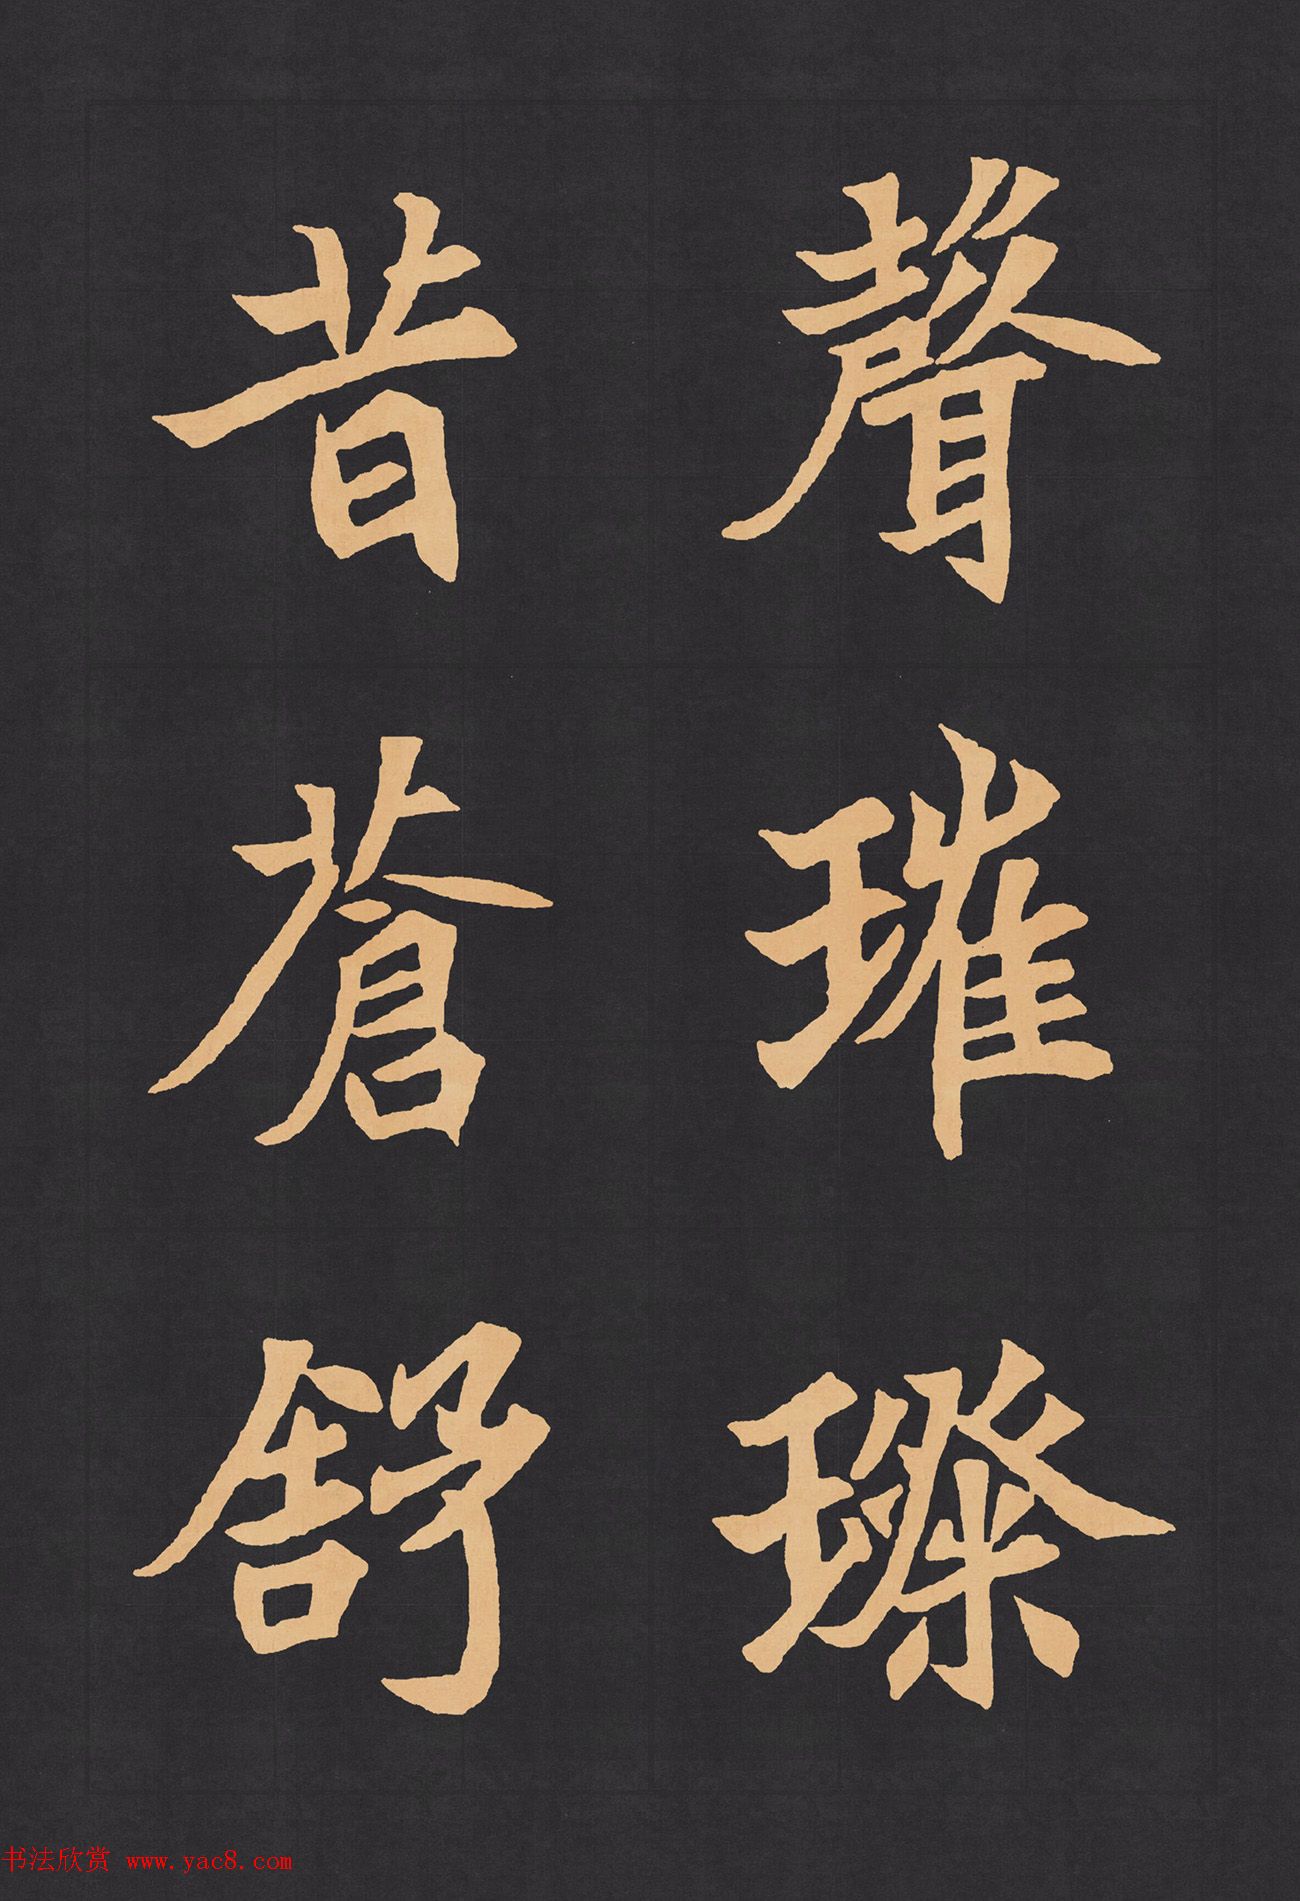 聲璀璨
昔蒼舒
书法欣赏 www.yac8.com